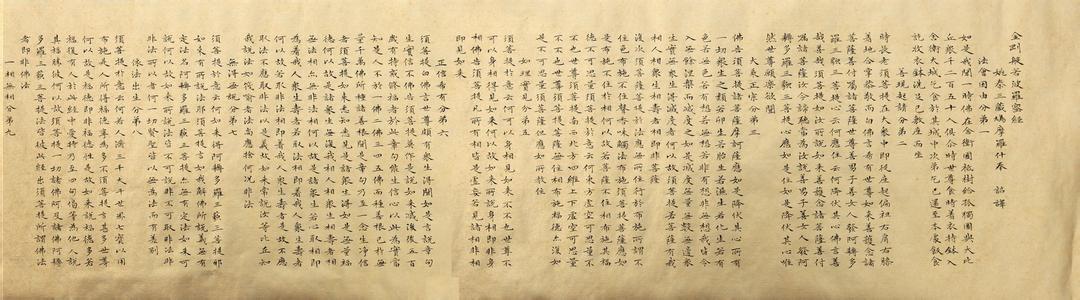 金剛般若波羅蜜經
姚秦三藏鳩摩羅什奉 詔譯
法會因由分第一
如是我聞一時佛在舍衛國祇樹給孤獨園與大比
丘眾千二百五十人俱爾時世尊食時著衣持缽入
舍衛大城乞食於其城中次第乞已還至本處飯食
訖收衣缽洗足已敷座而坐
善現起請分第二
時長老須菩提在大眾中即從座起偏袒右肩右膝
著地合掌恭敬而白佛言希有世尊如來善護念諸
菩薩善付囑諸菩薩世尊善男子善女人發阿耨多
羅三藐三菩提心云何應住云何降伏其心佛言善
哉善哉須菩提如汝所說如來善護念諸菩薩善付
囑諸菩薩汝今諦聽當為汝說善男子善女人發阿
耨多羅三藐三菩提心應如是住如是降伏其心唯
然世尊願樂欲聞
大乘正宗分第三
佛告須菩提諸菩薩摩訶薩應如是降伏其心所有
一切眾生之類若卵生若胎生若濕生若化生若有
色若無色若有想若無想若非有想非無想我皆令
入無餘涅槃而滅度之如是滅度無量無數無邊眾
生實無眾生得滅度者何以故須菩提若菩薩有我
相人相眾生相壽者相即非菩薩
復次須菩提菩薩於法應無所住行於布施所謂不
住色布施不住聲香味觸法布施須菩提菩薩應如
是布施不住於相何以故若菩薩不住相布施其福
德不可思量須菩提於意云何東方虛空可思量
不不也世尊須菩提南西北方四維上下虛空可思量
不不也世尊須菩提菩薩無住相布施福德亦復如
是不可思量須菩提菩薩但應如所教住
如理實見分第五
須菩提於意云何可以身相見如來不不也世尊不
可以身相得見如來何以故如來所說身相即非身
相佛告須菩提凡所有相皆是虛妄若見諸相非相
即見如來
正信希有分第六
須菩提白佛言世尊頗有眾生得聞如是言說章句
生實信不佛告須菩提莫作是說如來滅後後五百
歲有持戒修福者於此章句能生信心以此為實當
知是人不於一佛二佛三四五佛而種善根已於無
量千萬佛所種諸善根聞是章句乃至一念生淨信
者須菩提如來悉知悉見是諸眾生得如是無量福
德何以故是諸眾生無復我相人相眾生相壽者相
無法相亦無非法相何以故是諸眾生若心取相即
為著我人眾生壽者若取法相即著我人眾生壽者
何以故若取非法相即著我人眾生壽者是故不應
取法不應取非法以是義故如來常說汝等比丘知
我說法如筏喻者法尚應捨何況非法
無得無說分第七
須菩提於意云何如來得阿耨多羅三藐三菩提耶
如來有所說法耶須菩提言如我解佛所說義無有
定法名阿耨多羅三藐三菩提亦無有定法如來可
說何以故如來所說法皆不可取不可說非法非
非法所以者何一切賢聖皆以無為法而有差別
依法出生分第八
須菩提於意云何若人滿三千大千世界七寶以用
布施是人所得福德寧為多不須菩提言甚多世尊
何以故是福德即非福德性是故如來說福德多若
復有人於此經中受持乃至四句偈等為他人說
其福勝彼何以故須菩提一切諸佛及諸佛阿耨
多羅三藐三菩提法皆從此經出須菩提所謂佛法
者即非佛法
一相無相分第九